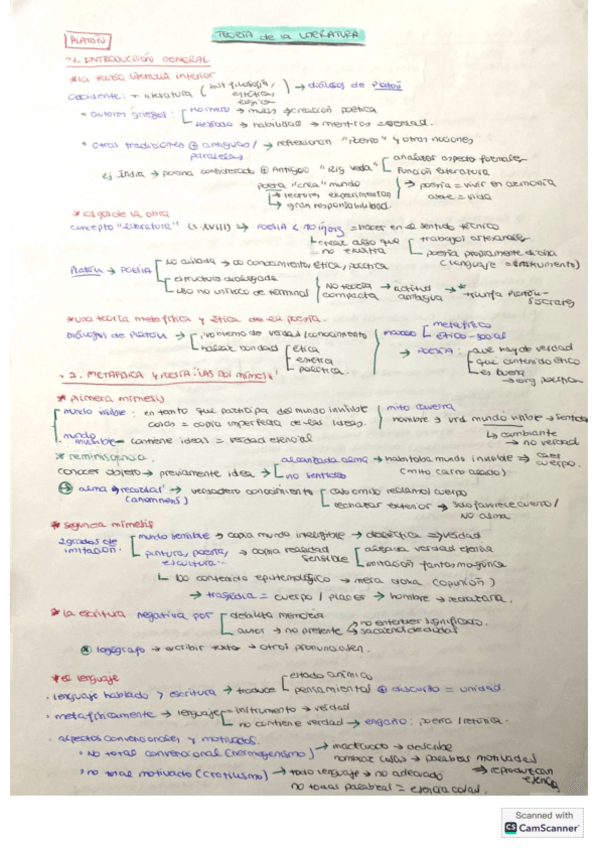 PLATÓN
TEORÍA de la LITERATURA
1. INTRODUCCIÓN GENERAL
* la teoría literaria anterior
Occidente: + literatura → diálogos de Platón
• autores griegos: Homero → musas → creación poética
Hesíodo → habilidad → mentiros = verdad.
• otras tradiciones ⊕ antiguas / paralelas → reflexionan "Poema" y otras nociones
Ej India → poema considerado ⊕ Antiguo "Rig Veda" analizar aspecto formales
función literatura
poeta "crea" mundo → poesía = vivir en armonía
→ gran responsabilidad.
* origen de la obra
concepto "literatura" (s. XVIII) → POESÍA = hacer en el sentido técnico
crear algo que no existía trabajos artesanales
poesía propiamente dicha
(lenguaje = instrumento)
Platón → POESÍA No aislada → conocimiento, ética, política
estructura dialogada
uso no unívoco de terminol No teoría compacta → actitud antigua → triunfa Platón-Sócrates
* una teoría metafísica y ética de la poesía.
Diálogos de Platón → verdad / conocimiento
bondad ética
estética
política.
metafísico
ético-social
→ POESÍA: que hay de verdad
que contenido ético
es buena
2. METAFÍSICA y POESÍA: LAS DOS MÍMESIS
* primera mímesis
mundo visible: en tanto que participa del mundo invisible
cosas = copia imperfecta de las ideas.
mito caverna
hombre → vrd mundo visible → sentidos
↳ cambiante
→ no verdad
mundo invisible → contiene ideas = verdad esencial
* reminiscencia.
conocer objeto → previamente idea → no sentidos
alma → habitaba mundo invisible → caer cuerpo.
(mito carro alado)
alma → recordar (anamnesis) → verdadero conocimiento caso omiso reclamos cuerpo
rechazar exterior → solo favorece cuerpo / NO alma
* segunda mímesis
2 grados de imitación. mundo sensible → copia mundo inteligible → dialéctica → verdad
pintura, poesía, escultura → copia realidad sensible aleja verdad
imitación fantasmagórica
↳ NO contenido epistemológico → mera doxa (opinión)
→ tragedia = cuerpo / placer → hombre → rechazarla.
* la escritura negativa por debilita memoria
autor → no presente no entender significado.
→ logógrafo → escribir texto → otros pronunciasen.
* el lenguaje
• lenguaje hablado y escritura → traduce estado anímico
pensamiento ⊕ discurso = unidad
• metafísicamente → lenguaje = instrumento → verdad
no contiene verdad → engaño: poesía / retórica.
• aspectos convencionales y motivados.
• No total convencional (hermogenismo) → inadecuado → describe
nombrar cosas → palabras motivadas
→ reproduzcan esencia
• no total motivado (cratilismo) → todo lenguaje → no adecuado
no todas palabras = esencia cosas.
Scanned with
CS CamScanner